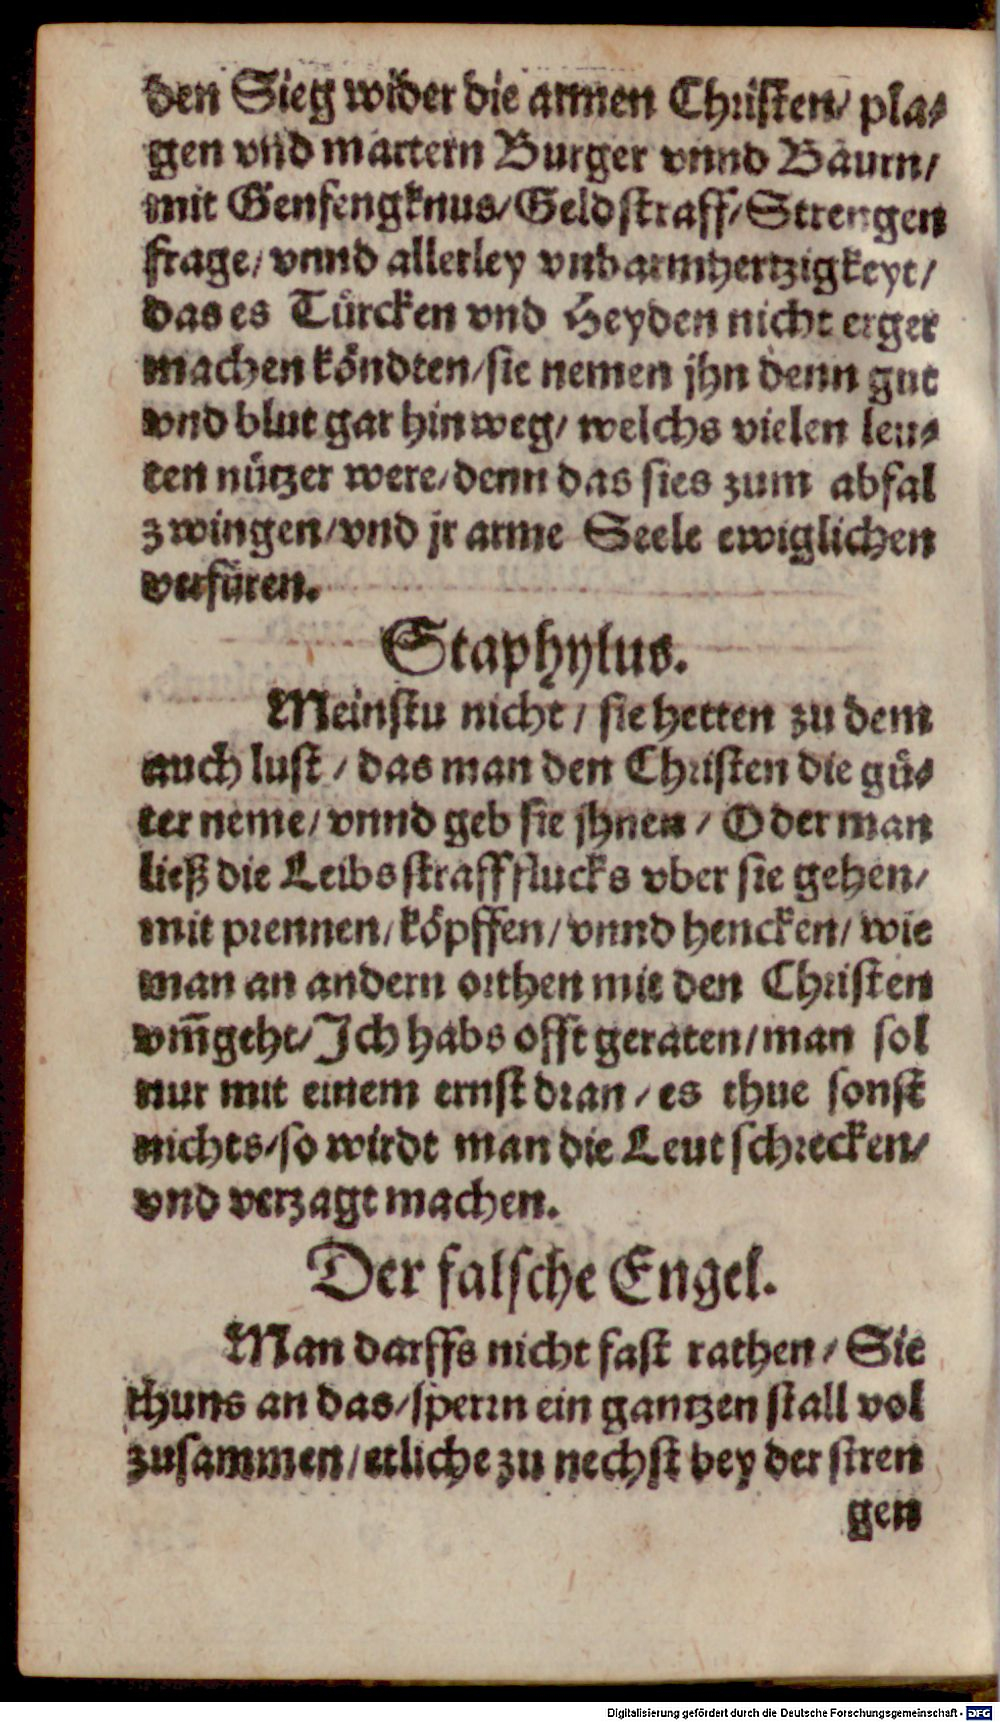 den Sieg wider die armen Christen/ pla⸗
gen vnd martern Burger vnnd Baurn/
mit Genfengknus/ Geldstraff/ Strengen
frage/ vnnd allerley vnbarmhertzigkeyt/
das es Türcken vnd Heyden nicht erger
machen köndten/ sie nemen jhn denn gut
vnd blut gar hinweg/ welchs vielen leu⸗
ten nützer were/ denn das sies zum abfal
zwingen/ vnd jr arme Seele ewiglichen
verfüren.
Staphylus.
Meinstu nicht/ sie hetten zu dem
auch lust/ das man den Christen die gü⸗
ter neme/ vnnd geb sie jhnen/ Oder man
ließ die Leibsstraff flucks vber sie gehen/
mit prennen/ köpffen/ vnnd hencken/ wie
man an andern orthen mit den Christen
vm̃geht/ Ich habs offt geraten/ man sol
nur mit einem ernst dran/ es thue sonst
nichts/ so wirdt man die Leut schrecken/
vnd verzagt machen.
Der falsche Engel.
Man darffs nicht fast rathen/ Sie
thuns an das/ sperrn ein gantzen stall vol
zusammen/ etliche zu nechst bey der stren
gen
Digitalisierung gefördert durch die Deutsche Forschungsgemeinschaft - DFG